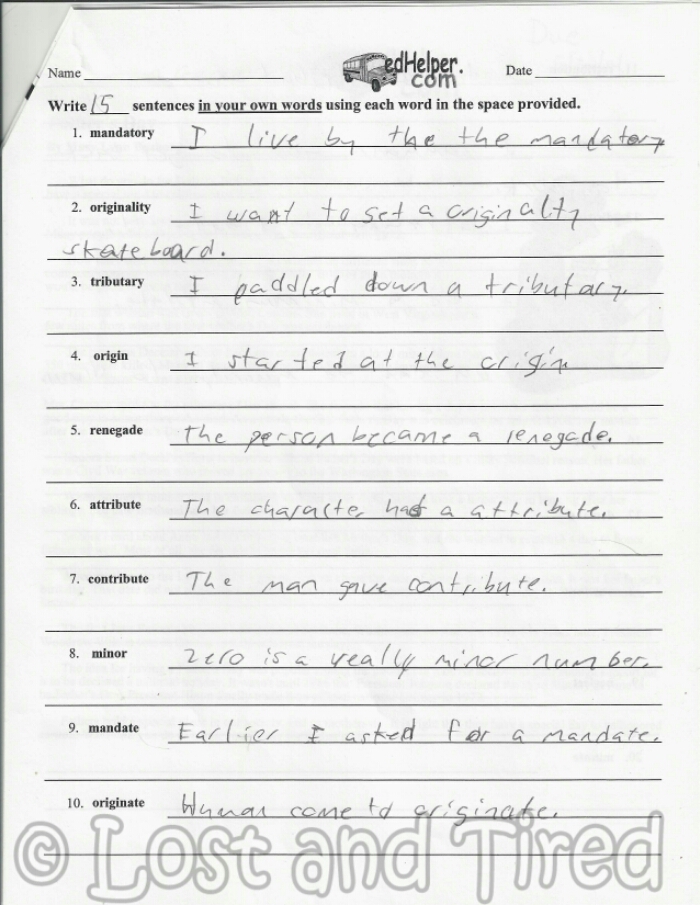 Name edHelper.com Date
Write 15 sentences in your own words using each word in the space provided.
1. mandatory I live by the the mandatory
2. originality I want to set a originality
skateboard.
3. tributary I paddled down a tributary.
4. origin I started at the origin
5. renegade The person became a renegade.
6. attribute The characte has a attribute.
7. contribute The man gave contribute.
8. minor Zero is a really minor number.
9. mandate Earlier I asked for a mandate.
10. originate Human come to originate.
© Lost and Tired